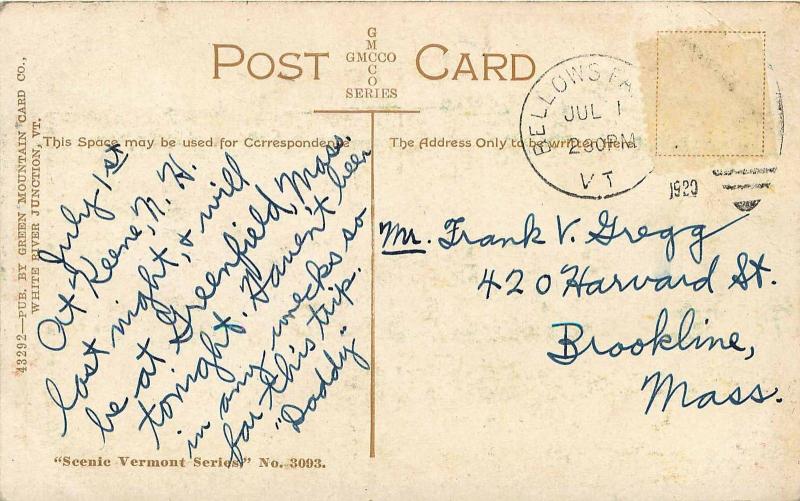 POST CARD
G
M
GMCCO
C
O
SERIES
43292—PUB. BY GREEN MOUNTAIN CARD CO.,
WHITE RIVER JUNCTION, VT.
This Space may be used for Correspondence
The Address Only to be written Here
BELLOWS FA
JUL 1
230PM
VT
1920
July 1st
At Keene, N. H.
last night, & will
be at Greenfield, Mass.
tonight. Haven't been
in any wrecks so
far this trip.
"Daddy"
Mr. Frank V. Gregg
420 Harvard St.
Brookline,
Mass.
"Scenic Vermont Series," No. 3093.